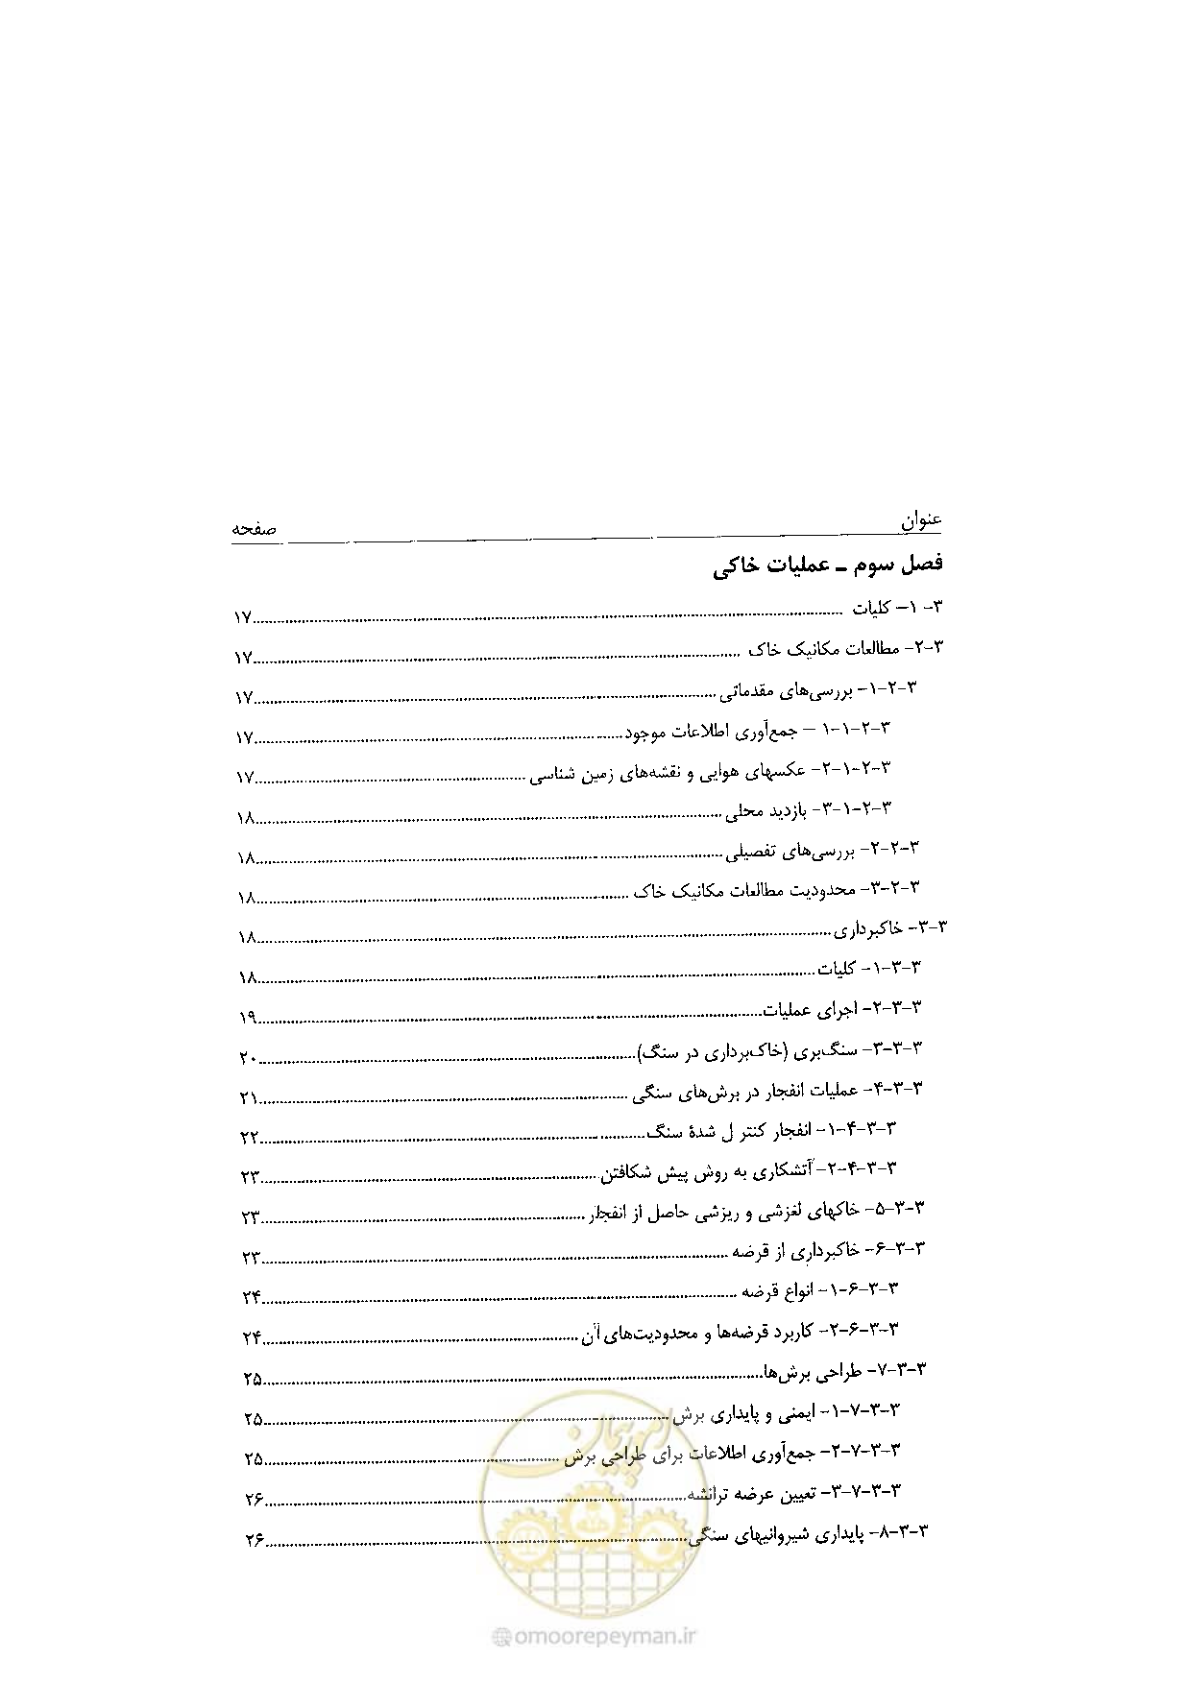 عنوان صفحه
فصل سوم ـ عملیات خاکی
۳- ۱– کلیات ........ ۱۷
۳-۲- مطالعات مکانیک خاک ........ ۱۷
۳-۲-۱- بررسی‌های مقدماتی ........ ۱۷
۳-۲-۱-۱ – جمع‌آوری اطلاعات موجود ........ ۱۷
۳-۲-۱-۲- عکسهای هوایی و نقشه‌های زمین شناسی ........ ۱۷
۳-۲-۱-۳- بازدید محلی ........ ۱۸
۳-۲-۲- بررسی‌های تفصیلی ........ ۱۸
۳-۲-۳- محدودیت مطالعات مکانیک خاک ........ ۱۸
۳-۳- خاکبرداری ........ ۱۸
۳-۳-۱- کلیات ........ ۱۸
۳-۳-۲- اجرای عملیات ........ ۱۹
۳-۳-۳- سنگ‌بری (خاک‌برداری در سنگ) ........ ۲۰
۳-۳-۴- عملیات انفجار در برش‌های سنگی ........ ۲۱
۳-۳-۴-۱- انفجار کنتر ل شدهٔ سنگ ........ ۲۲
۳-۳-۴-۲- آتشکاری به روش پیش شکافتن ........ ۲۳
۳-۳-۵- خاکهای لغزشی و ریزشی حاصل از انفجار ........ ۲۳
۳-۳-۶- خاکبرداری از قرضه ........ ۲۳
۳-۳-۶-۱- انواع قرضه ........ ۲۴
۳-۳-۶-۲- کاربرد قرضه‌ها و محدودیت‌های آن ........ ۲۴
۳-۳-۷- طراحی برش‌ها ........ ۲۵
۳-۳-۷-۱- ایمنی و پایداری برش ........ ۲۵
۳-۳-۷-۲- جمع‌آوری اطلاعات برای طراحی برش ........ ۲۵
۳-۳-۷-۳- تعیین عرضه ترانشه ........ ۲۶
۳-۳-۸- پایداری شیروانیهای سنگی ........ ۲۶
امور پیمان
@omoorepeyman.ir